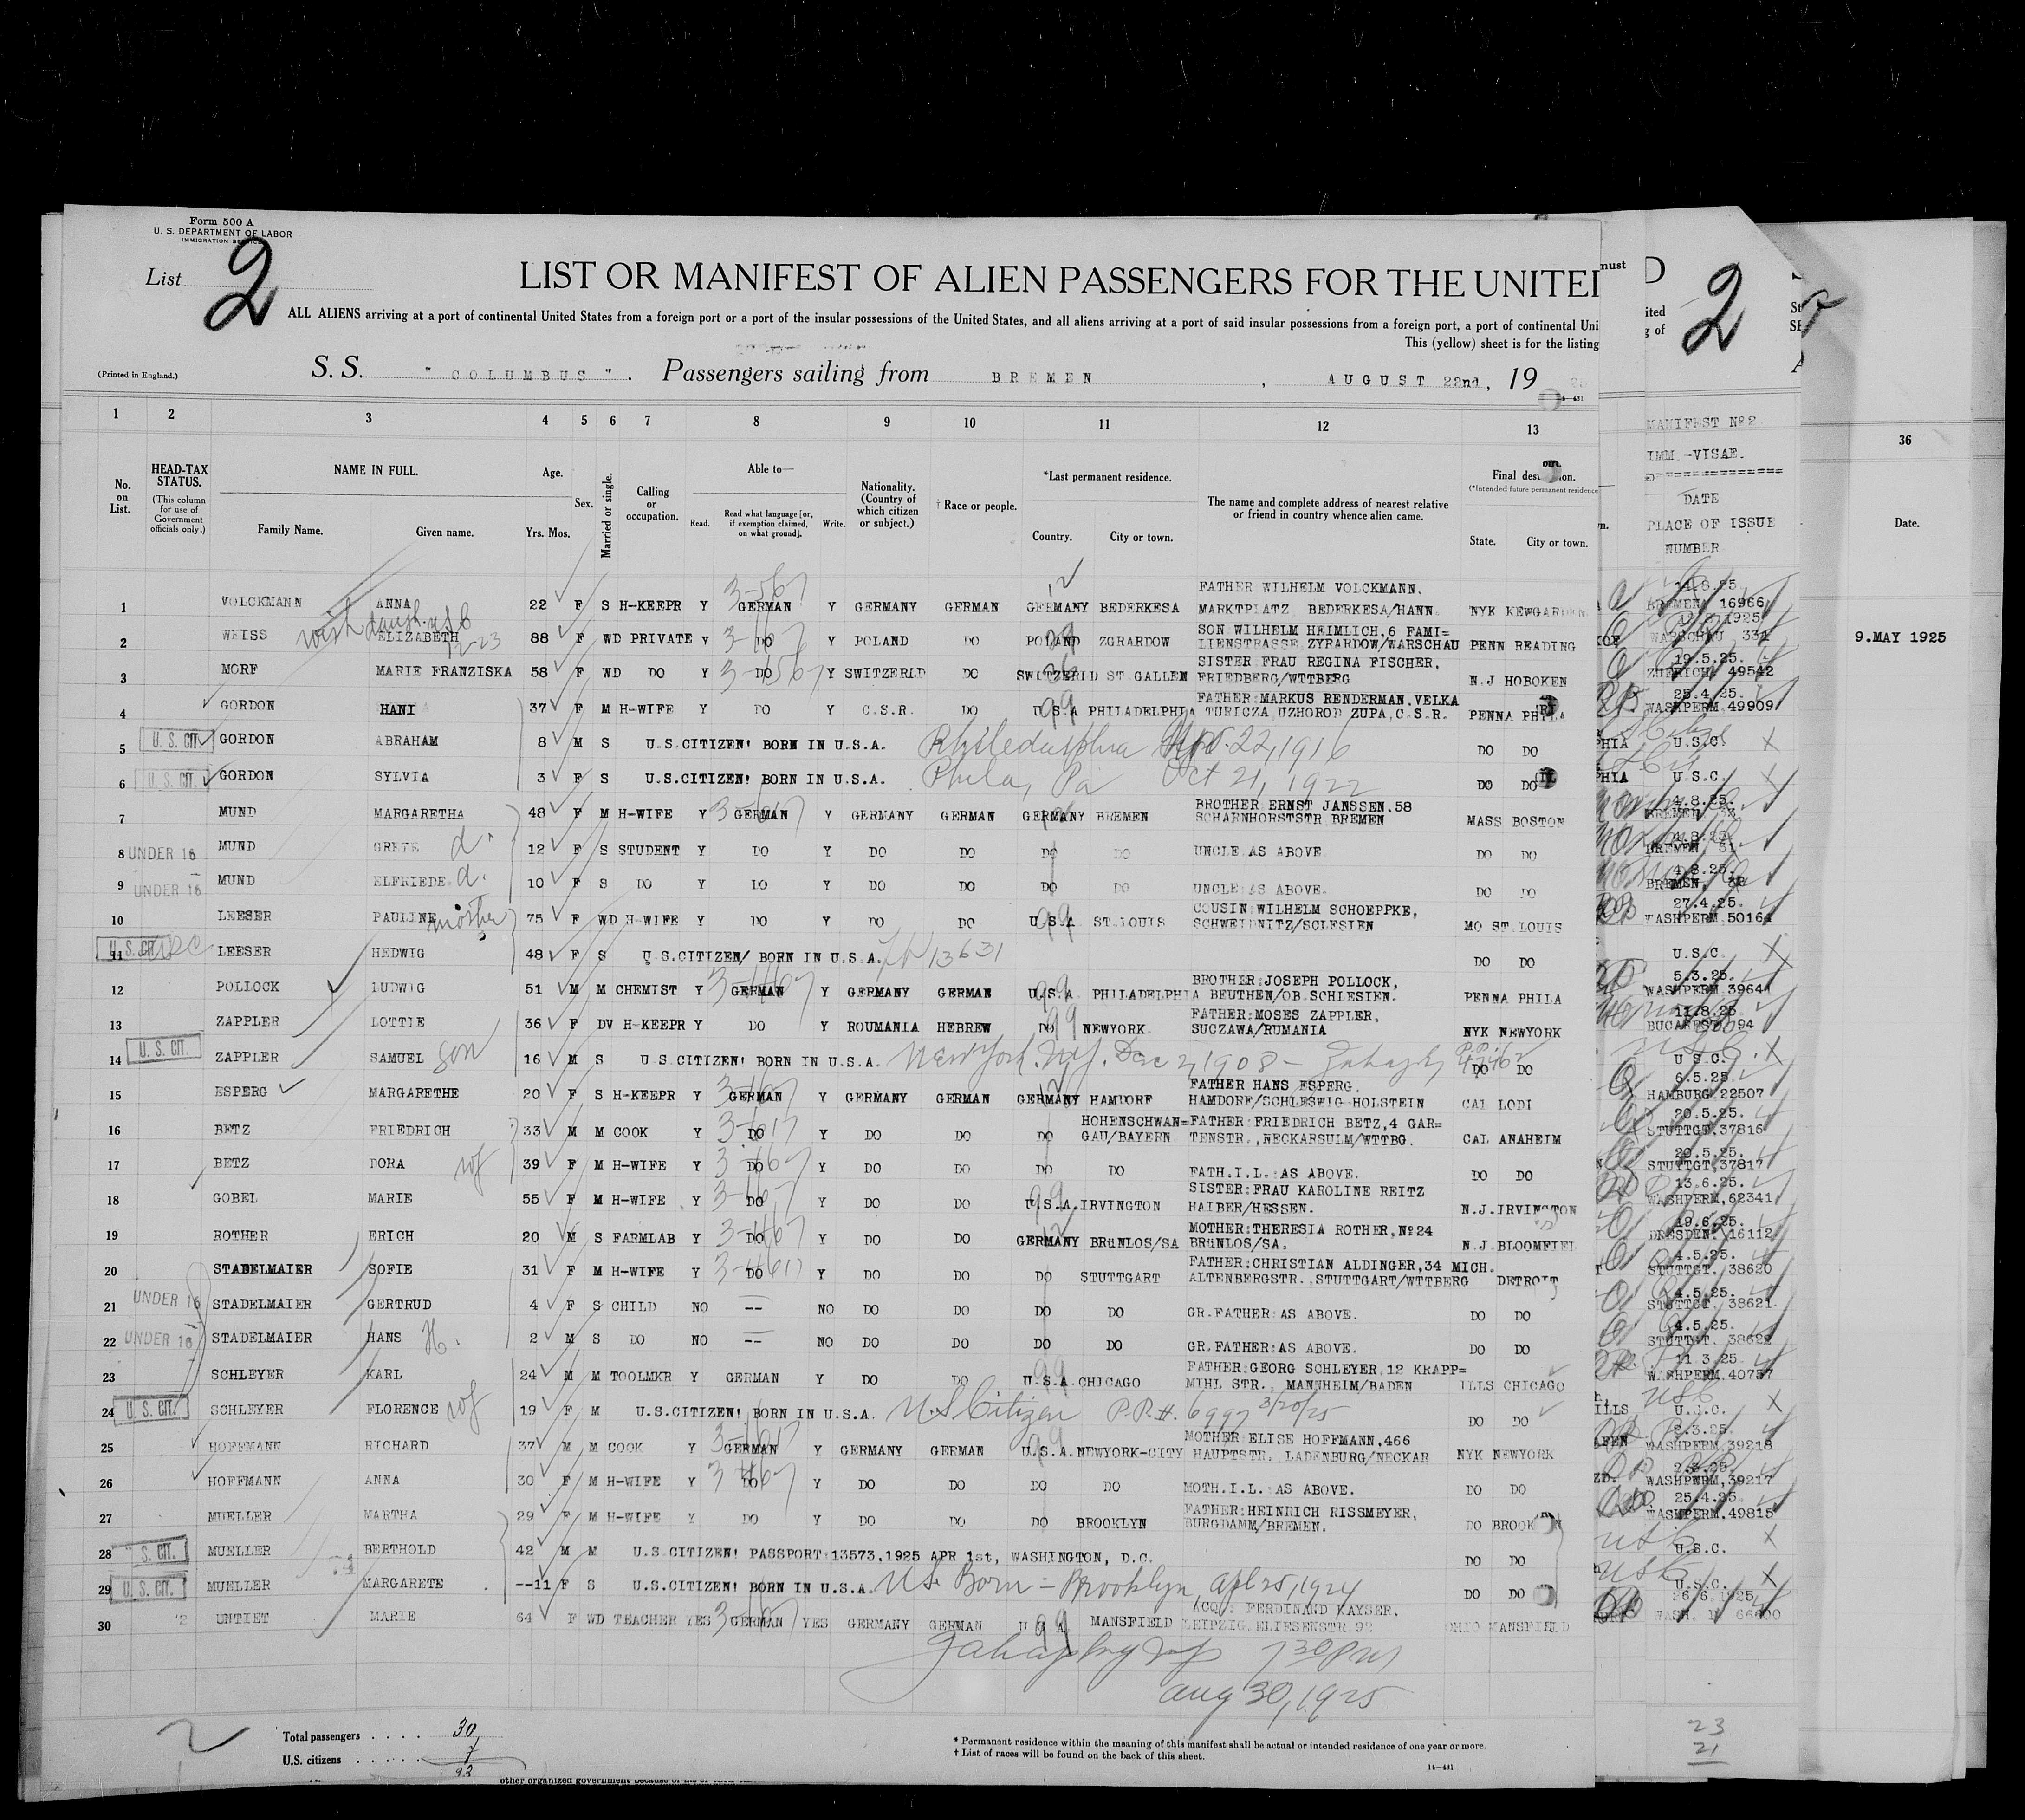 Form 500 A
U. S. DEPARTMENT OF LABOR
IMMIGRATION
List 2
LIST OR MANIFEST OF ALIEN PASSENGERS FOR THE UNITE
ALL ALIENS arriving at a port of continental United States from a foreign port or a port of the insular possessions of the United States, and all aliens arriving at a port of said insular possessions from a foreign port, a port of continental Uni
This (yellow) sheet is for the listing
(Printed in England.)
S. S. " COLUMBUS " . Passengers sailing from BREMEN , AUGUST 22nd, 19
1 2 3 4 5 6 7 8 9 10 11 12 13
No. on List.
HEAD-TAX STATUS.
(This column for use of Government officials only.)
NAME IN FULL.
Family Name. Given name.
Age.
Yrs. Mos.
Sex.
Married or single.
Calling or occupation.
Able to—
Read. Read what language [or, if exemption claimed, on what ground]. Write.
Nationality. (Country of which citizen or subject.)
† Race or people.
*Last permanent residence.
Country. City or town.
The name and complete address of nearest relative or friend in country whence alien came.
Final
(*Intended future permanent residence
State. City or town.
MANIFEST Nº2
IMM.-VISAE.
DATE
PLACE OF ISSUE
NUMBER
36
Date.
1 VOLCKMANN ANNA 22 F S H-KEEPR Y GERMAN Y GERMANY GERMAN GERMANY BEDERKESA FATHER WILHELM VOLCKMANN, MARKTPLATZ BEDERKESA/HANN. NYK BREMEN 16966
2 WEISS ELIZABETH 88 F WD PRIVATE Y DO Y POLAND DO POLAND ZGRARDOW SON WILHELM HEIMLICH,6 FAMI=LIENSTRASSE ZYRARDOW/WARSCHAU PENN READING WARSCHAU 9.MAY 1925
3 MORF MARIE FRANZISKA 58 F WD DO Y DO Y SWITZERLD DO SWITZERLD ST GALLEN SISTER FRAU REGINA FISCHER, FRIEDBERG/WTTBERG N.J HOBOKEN 19.5.25. ZURICH 49542
4 GORDON HANI 37 F M H-WIFE Y DO Y C.S.R. DO U.S.A PHILADELPHIA FATHER:MARKUS RENDERMAN,VELKA TURICZA,UZHOROD ZUPA,C.S.R. PENNA PHILA 25.4.25. WASHPERM 49909
5 U. S. CIT. GORDON ABRAHAM 8 M S U.S.CITIZEN! BORN IN U.S.A. 22,1916 DO DO U.S.C. X
6 U. S. CIT. GORDON SYLVIA 3 F S U.S.CITIZEN! BORN IN U.S.A. Phila, Pa Oct 21, 1922 DO DO U.S.C. X
7 MUND MARGARETHA 48 F M H-WIFE Y GERMAN Y GERMANY GERMAN GERMANY BREMEN BROTHER ERNST JANSSEN,58 SCHARNHORSTSTR BREMEN MASS BOSTON 4.8.25. BREMEN
8 UNDER 16 MUND GRETE d. 12 F S STUDENT Y DO Y DO DO DO DO UNCLE AS ABOVE DO DO 4.8.25. BREMEN, 31
9 UNDER 16 MUND ELFRIEDE d. 10 F S DO Y DO Y DO DO DO DO UNCLE AS ABOVE. DO DO 4.8.25. BREMEN,
10 LEESER PAULINE mother 75 F WD H-WIFE Y DO Y DO DO U.S.A. ST.LOUIS COUSIN WILHELM SCHOEPPKE, SCHWEIDNITZ/SCLESIEN MO ST.LOUIS 27.4.25. WASHPERM 50164
11 U. S. CIT. LEESER HEDWIG 48 F S U.S.CITIZEN/ BORN IN U.S.A. 13631 DO DO U.S.C. X
12 POLLOCK LUDWIG 51 M M CHEMIST Y GERMAN Y GERMANY GERMAN U.S.A. PHILADELPHIA BROTHER:JOSEPH POLLOCK, BEUTHEN/OB.SCHLESIEN. PENNA PHILA 5.3.25. WASHPERM 39641
13 ZAPPLER LOTTIE 36 F DV H-KEEPR Y DO Y ROUMANIA HEBREW DO NEWYORK FATHER:MOSES ZAPPLER, SUCZAWA/RUMANIA NYK NEWYORK 11.8.25 BUCAREST 94
14 U. S. CIT. ZAPPLER SAMUEL son 16 M S U.S.CITIZEN! BORN IN U.S.A. New York. N.Y. Dec 2, 1908 DO DO U.S.C. X
15 ESPERG MARGARETHE 20 F S H-KEEPR Y GERMAN Y GERMANY GERMAN GERMANY HAMDORF FATHER HANS ESPERG. HAMDORF/SCHLESWIG HOLSTEIN CAL LODI 6.5.25. HAMBURG 22507
16 BETZ FRIEDRICH 33 M M COOK Y DO Y DO DO DO HOHENSCHWAN=GAU/BAYERN FATHER:FRIEDRICH BETZ,4 GAR=TENSTR.,NECKARSULM/WTTBG. CAL ANAHEIM 20.5.25. STUTTGT,37816
17 BETZ DORA wf 39 F M H-WIFE Y DO Y DO DO DO DO FATH.I.L. AS ABOVE. DO DO 20.5.25. STUTTGT,37817
18 GOBEL MARIE 55 F M H-WIFE Y DO Y DO DO U.S.A.IRVINGTON SISTER:FRAU KAROLINE REITZ HAIBER/HESSEN. N.J.IRVINGTON 13.6.25. WASHPERM,62341
19 ROTHER ERICH 20 M S FARMLAB Y DO Y DO DO GERMANY BRÜNLOS/SA MOTHER:THERESIA ROTHER,Nº24 BRÜNLOS/SA. N.J BLOOMFIEL 19.6.25. DRESDEN. 16112
20 STADELMAIER SOFIE 31 F M H-WIFE Y DO Y DO DO DO STUTTGART FATHER:CHRISTIAN ALDINGER,34 ALTENBERGSTR. STUTTGART/WTTBERG MICH. DETROIT 4.5.25. STUTTGT. 38620
21 UNDER 16 STADELMAIER GERTRUD 4 F S CHILD NO -- NO DO DO DO DO GR.FATHER AS ABOVE. DO DO 4.5.25. STUTTGT. 38621
22 UNDER 16 STADELMAIER HANS 2 M S DO NO -- NO DO DO DO DO GR.FATHER AS ABOVE. DO DO 4.5.25. STUTTGT. 38622
23 SCHLEYER KARL 24 M M TOOLMKR Y GERMAN Y DO DO U.S.A.CHICAGO FATHER:GEORG SCHLEYER,12 KRAPP=MIHL STR., MANNHEIM/BADEN ILLS CHICAGO 11.3.25. WASHPERM,40757
24 U. S. CIT. SCHLEYER FLORENCE wf 19 F M U.S.CITIZEN! BORN IN U.S.A. U.S Citizen P.P.#. 6997 3/20/25 DO DO U.S.C. X
25 HOFFMANN RICHARD 37 M M COOK Y GERMAN Y GERMANY GERMAN U.S.A.NEWYORK-CITY MOTHER ELISE HOFFMANN,466 HAUPTSTR. LADENBURG/NECKAR NYK NEWYORK 2.3.25. WASHPERM,39218
26 HOFFMANN ANNA 30 F M H-WIFE Y DO Y DO DO DO DO MOTH.I.L. AS ABOVE. DO DO WASHPERM,39217
27 MUELLER MARTHA 29 F M H-WIFE Y DO Y DO DO DO BROOKLYN FATHER:HEINRICH RISSMEYER, BURGDAMM/BREMEN. DO 25.4.25 WASHPERM,49815
28 S. CIT. MUELLER BERTHOLD 42 M M U.S.CITIZEN! PASSPORT 13573,1925 APR 1st, WASHINGTON, D.C. DO DO U.S.C. X
29 U. S. CIT. MUELLER MARGARETE --11 F S U.S.CITIZEN! BORN IN U.S.A. U.S. Born - Brooklyn, Apl 25, 1924 DO DO U.S.C. X
30 UNTIET MARIE 64 F WD TEACHER YES GERMAN YES GERMANY GERMAN U S A MANSFIELD ACQ: FERDINAND KAYSER, LEIPZIG,ELIESENSTR 92 OHIO MANSFIELD 66600
730 PM
Aug 30, 1925
Total passengers . . . . 30
U.S. citizens . . . . . . 7
* Permanent residence within the meaning of this manifest shall be actual or intended residence of one year or more.
† List of races will be found on the back of this sheet.
14—431
23
21